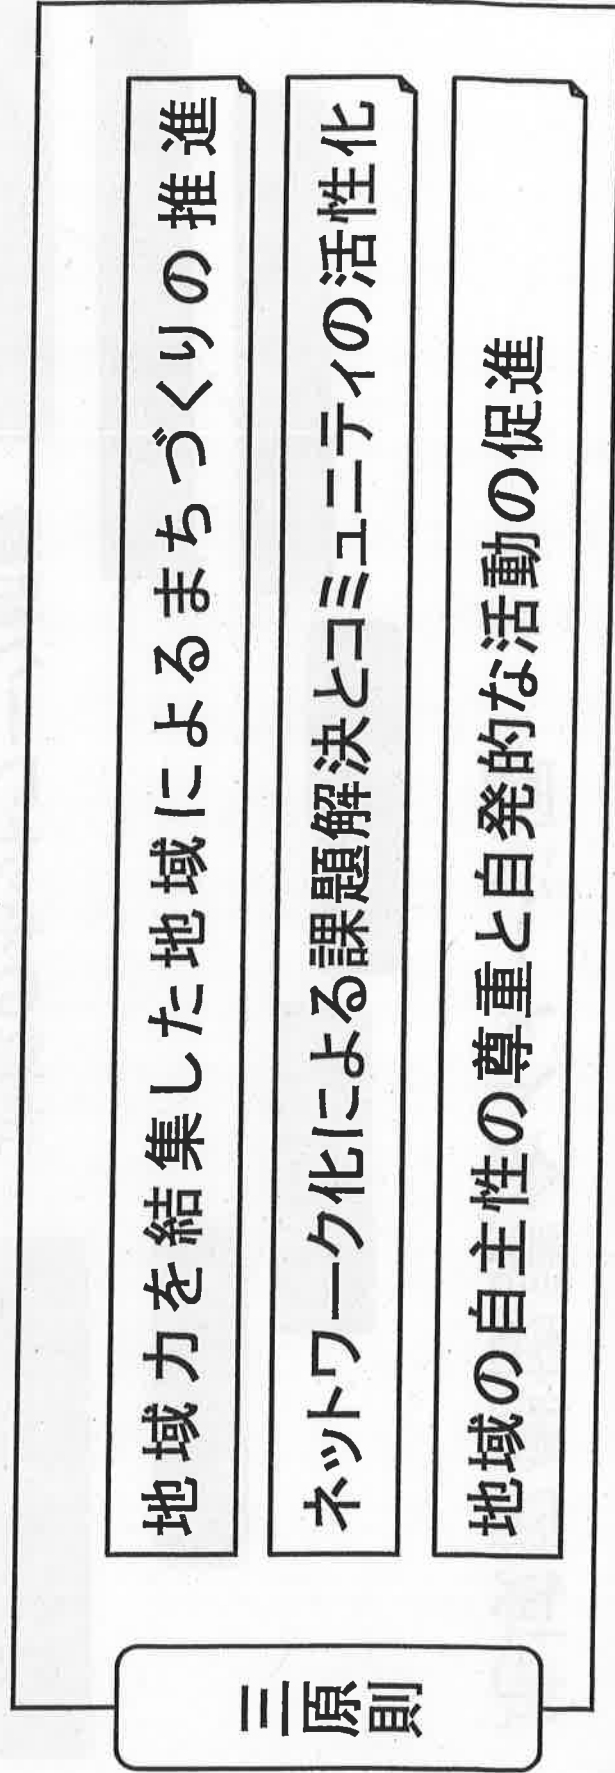 三原則
地域力を結集した地域によるまちづくりの推進
ネットワーク化による課題解決とコミュニティの活性化
地域の自主性の尊重と自発的な活動の促進